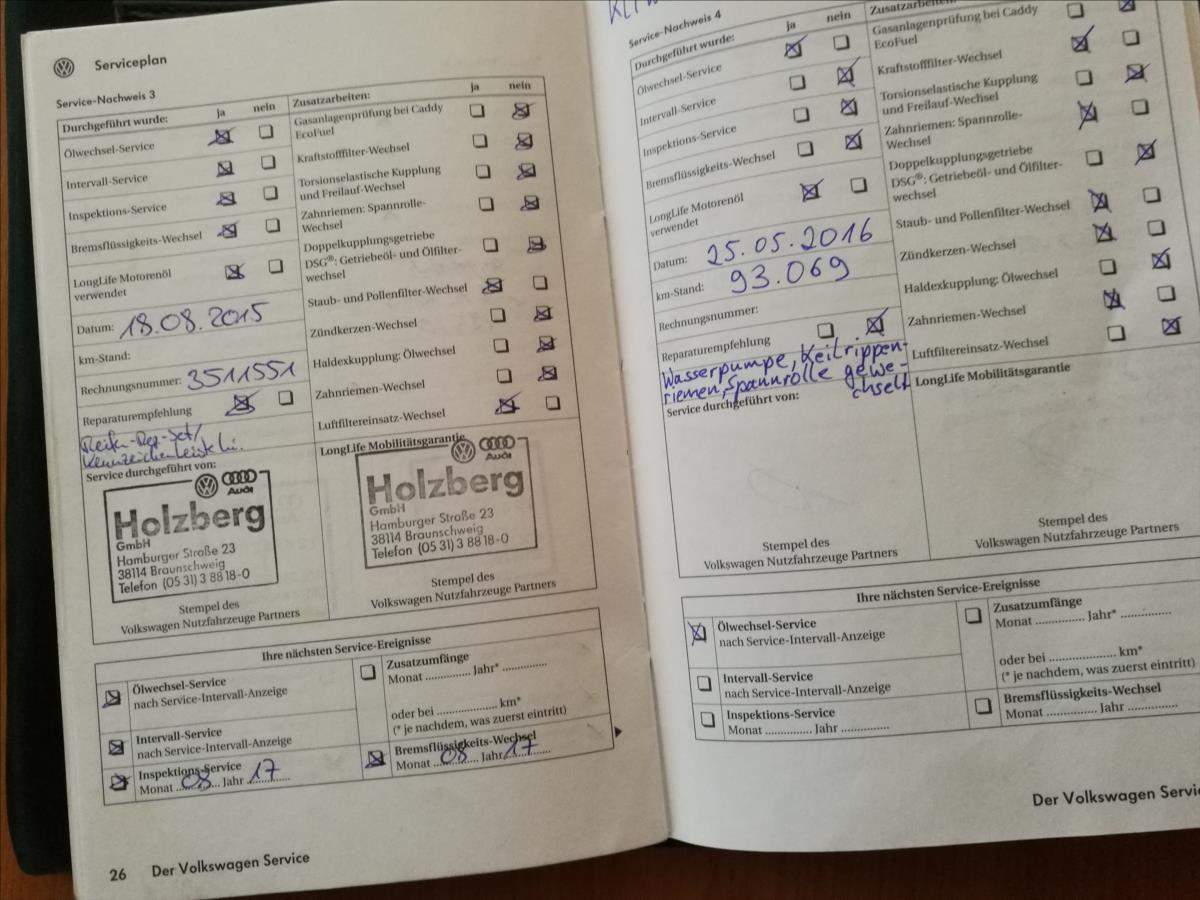 Serviceplan
Service-Nachweis 3
Durchgeführt wurde: ja nein
Ölwechsel-Service
Intervall-Service
Inspektions-Service
Bremsflüssigkeits-Wechsel
LongLife Motorenöl
verwendet
Datum: 18.08.2015
km-Stand:
Rechnungsnummer: 3511551
Reparaturempfehlung
Reifen-Rep-Set/
Kennzeichenleiste
Service durchgeführt von:
Audi
Holzberg
GmbH
Hamburger Straße 23
38114 Braunschweig
Telefon (05 31) 3 88 18-0
Stempel des
Volkswagen Nutzfahrzeuge Partners
Zusatzarbeiten: ja nein
Gasanlagenprüfung bei Caddy
EcoFuel
Kraftstofffilter-Wechsel
Torsionselastische Kupplung
und Freilauf-Wechsel
Zahnriemen: Spannrolle-
Wechsel
Doppelkupplungsgetriebe
DSG®: Getriebeöl- und Ölfilter-
wechsel
Staub- und Pollenfilter-Wechsel
Zündkerzen-Wechsel
Haldexkupplung: Ölwechsel
Zahnriemen-Wechsel
Luftfiltereinsatz-Wechsel
LongLife Mobilitätsgarantie
Audi
Holzberg
GmbH
Hamburger Straße 23
38114 Braunschweig
Telefon (05 31) 3 88 18-0
Stempel des
Volkswagen Nutzfahrzeuge Partners
Ihre nächsten Service-Ereignisse
Ölwechsel-Service
nach Service-Intervall-Anzeige
Intervall-Service
nach Service-Intervall-Anzeige
Inspektions-Service
Monat 08 Jahr 17
Zusatzumfänge
Monat .............. Jahr* ..............
oder bei .................... km*
(* je nachdem, was zuerst eintritt)
Bremsflüssigkeits-Wechsel
Monat 08 Jahr 17
26 Der Volkswagen Service
Service-Nachweis 4
Durchgeführt wurde: ja nein
Ölwechsel-Service
Intervall-Service
Inspektions-Service
Bremsflüssigkeits-Wechsel
LongLife Motorenöl
verwendet
Datum: 25.05.2016
km-Stand: 93.069
Rechnungsnummer:
Reparaturempfehlung
Wasserpumpe, Keilrippen-
riemen, Spannrolle gewe-
chselt
Service durchgeführt von:
Stempel des
Volkswagen Nutzfahrzeuge Partners
Zusatzarbeiten:
Gasanlagenprüfung bei Caddy
EcoFuel
Kraftstofffilter-Wechsel
Torsionselastische Kupplung
und Freilauf-Wechsel
Zahnriemen: Spannrolle-
Wechsel
Doppelkupplungsgetriebe
DSG®: Getriebeöl- und Ölfilter-
wechsel
Staub- und Pollenfilter-Wechsel
Zündkerzen-Wechsel
Haldexkupplung: Ölwechsel
Zahnriemen-Wechsel
Luftfiltereinsatz-Wechsel
LongLife Mobilitätsgarantie
Stempel des
Volkswagen Nutzfahrzeuge Partners
Ihre nächsten Service-Ereignisse
Ölwechsel-Service
nach Service-Intervall-Anzeige
Intervall-Service
nach Service-Intervall-Anzeige
Inspektions-Service
Monat .............. Jahr ..............
Zusatzumfänge
Monat .............. Jahr* ..............
oder bei .................... km*
(* je nachdem, was zuerst eintritt)
Bremsflüssigkeits-Wechsel
Monat .............. Jahr ..............
Der Volkswagen Servi